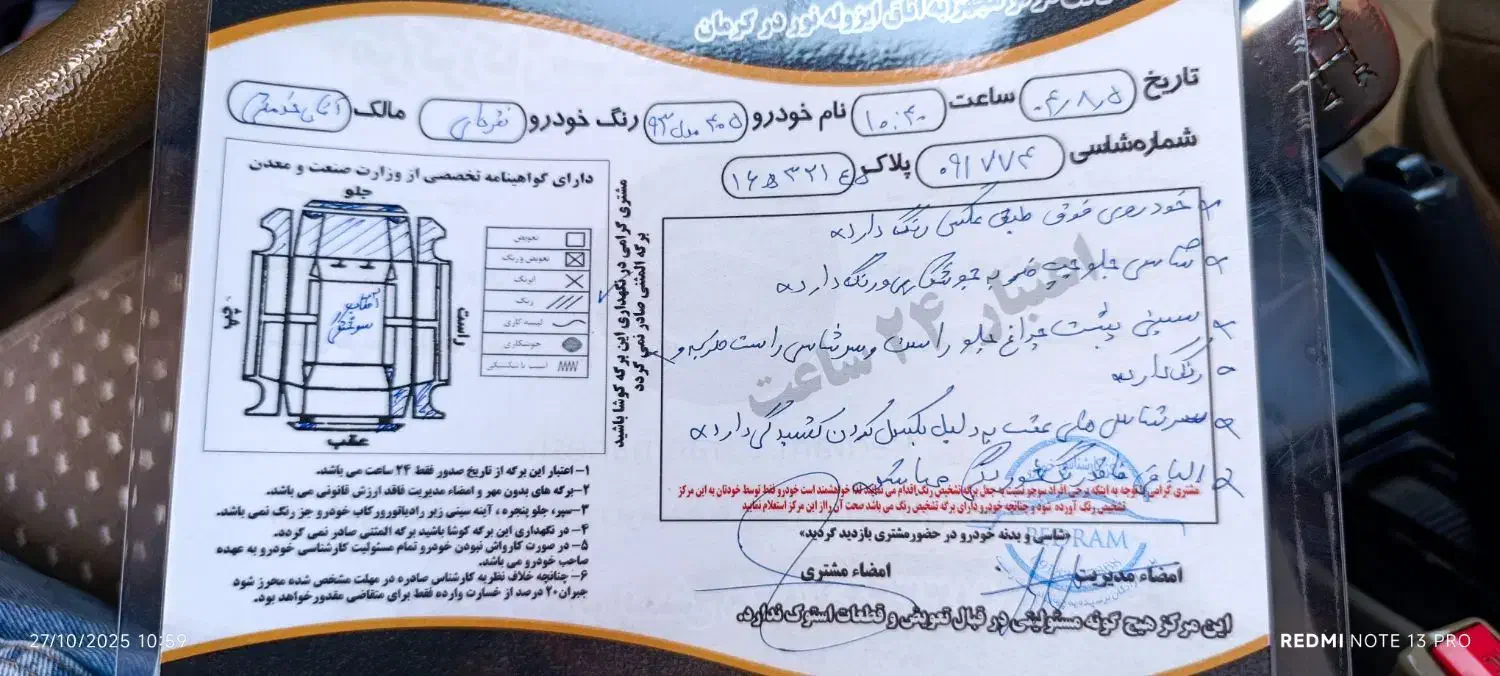 به اتاق ایزوله نور در کرمان
تاریخ ۰۴٫۸٫۵ ساعت ۱۰:۴۰ نام خودرو ۴۰۵ مدل ۹۳ رنگ خودرو نقره‌ای مالک آقای خدمتی
شماره شاسی ۰۹۱۷۷۴ پلاک
دارای گواهینامه تخصصی از وزارت صنعت و معدن
جلو
چپ
راست
عقب
آفتاب سوختگی
تعویض
تعویض ورنگ
آبرنگ
رنگ
لیسه کاری
جوشکاری
مشتری گرامی در نگهداری این برگه کوشا باشید
برگه المثنی صادر نمی گردد
خودروی فوق طبق عکس رنگ دارد
شاسی جلو چپ ضربه جوشکاری و رنگ دارد
سینی پشت چراغ جلو راست و سرشاسی راست ضربه و
رنگ دارد
سرشاسی های عقب به دلیل بکسل کردن کشیدگی دارد
اعتبار ۲۴ ساعت
مشتری گرامی با توجه به اینکه برخی افراد سودجو نسبت به جعل برگه تشخیص رنگ اقدام می نمایند لذا خواهشمند است خودرو فقط توسط خودتان به این مرکز
تشخیص رنگ آورده شود و چنانچه خودرو دارای برگه تشخیص رنگ می باشد صحت آن را از این مرکز استعلام نمایید
«شاسی و بدنه خودرو در حضور مشتری بازدید گردید»
امضاء مدیریت
امضاء مشتری
PEDRAM
این مرکز هیچ گونه مسئولیتی در قبال تعویض و قطعات استوک ندارد.
۱- اعتبار این برگه از تاریخ صدور فقط ۲۴ ساعت می باشد.
۲- برگه های بدون مهر و امضاء مدیریت فاقد ارزش قانونی می باشد.
۳- سپر، جلو پنجره ، آینه سینی زیر رادیاتورور کاب خودرو جز رنگ نمی باشد.
۴- در نگهداری این برگه کوشا باشید برگه المثنی صادر نمی گردد.
۵- در صورت کارواش نبودن خودرو تمام مسئولیت کارشناسی خودرو به عهده
صاحب خودرو می باشد.
۶- چنانچه خلاف نظریه کارشناس صادره در مهلت مشخص شده محرز شود
جبران ۲۰ درصد از خسارت وارده فقط برای متقاضی مقدور خواهد بود.
27/10/2025 10:59
REDMI NOTE 13 PRO